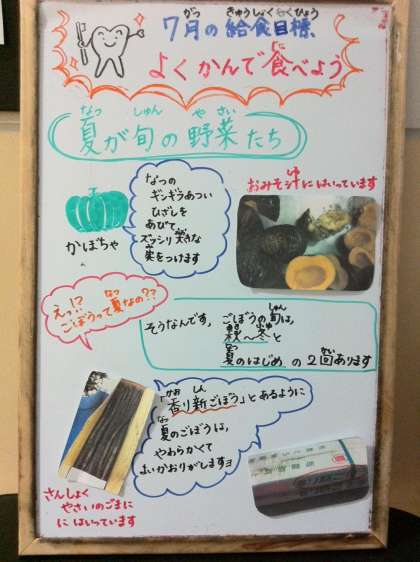 7月の給食目標
がつ きゅうしょくもくひょう
よくかんで食べよう
た
夏が旬の野菜たち
なつ しゅん やさい
かぼちゃ
なつの
ギンギラあつい
ひざしを
あびて
ズッシリ大きな
実をつけます
おみそ汁にはいっています
えっ!?
ごぼうって夏なの??
なつ
そうなんです。ごぼうの旬は、
しゅん
秋〜冬と
夏のはじめ の2回あります
「香り新ごぼう」とあるように
かお しん
夏のごぼうは、
なつ
やわらかくて
よいかおりがしますヨ
さんしょく
やさいのごまに
にはいっています